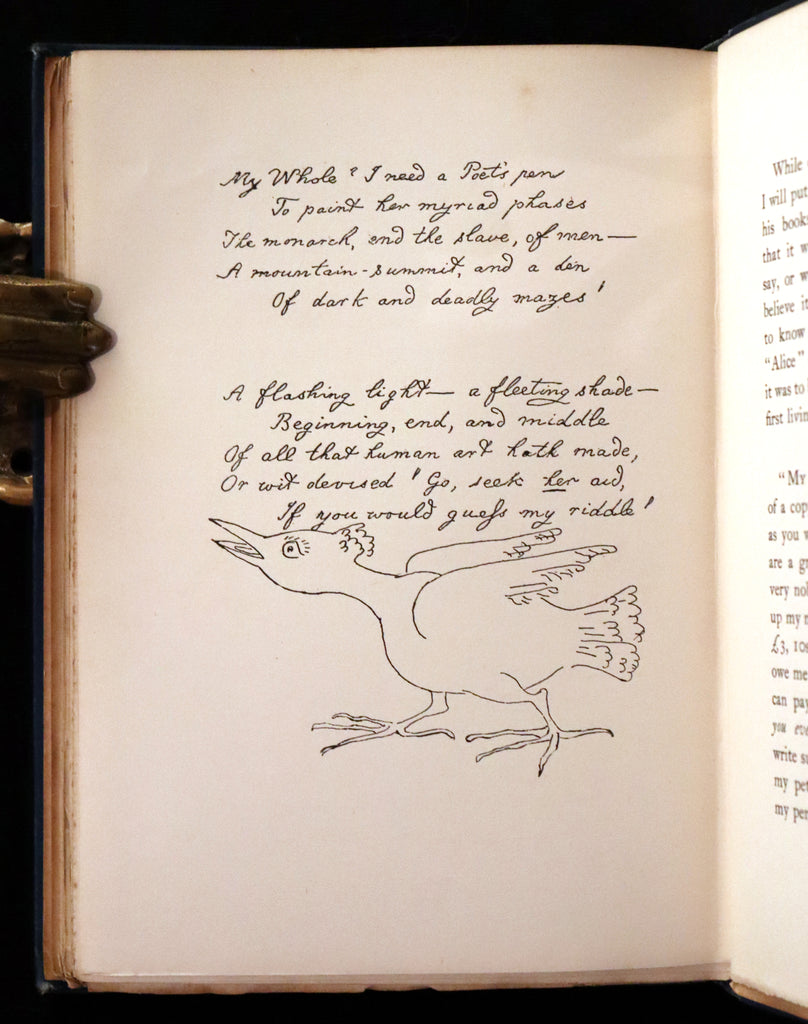 My Whole? I need a Poet's pen
To paint her myriad phases
The monarch, and the slave, of men—
A mountain-summit, and a den
Of dark and deadly mazes!
A flashing light— a fleeting shade—
Beginning, end, and middle
Of all that human art hath made,
Or wit devised! Go, seek her aid,
If you would guess my riddle!
While
I will put
his book
that it w
say, or w
believe i
to know
"Alice"
it was to
first livin
"My
of a cop
as you w
are a g
very no
up my
£3, 10s
owe me
can pa
you eve
write s
my pe
my per